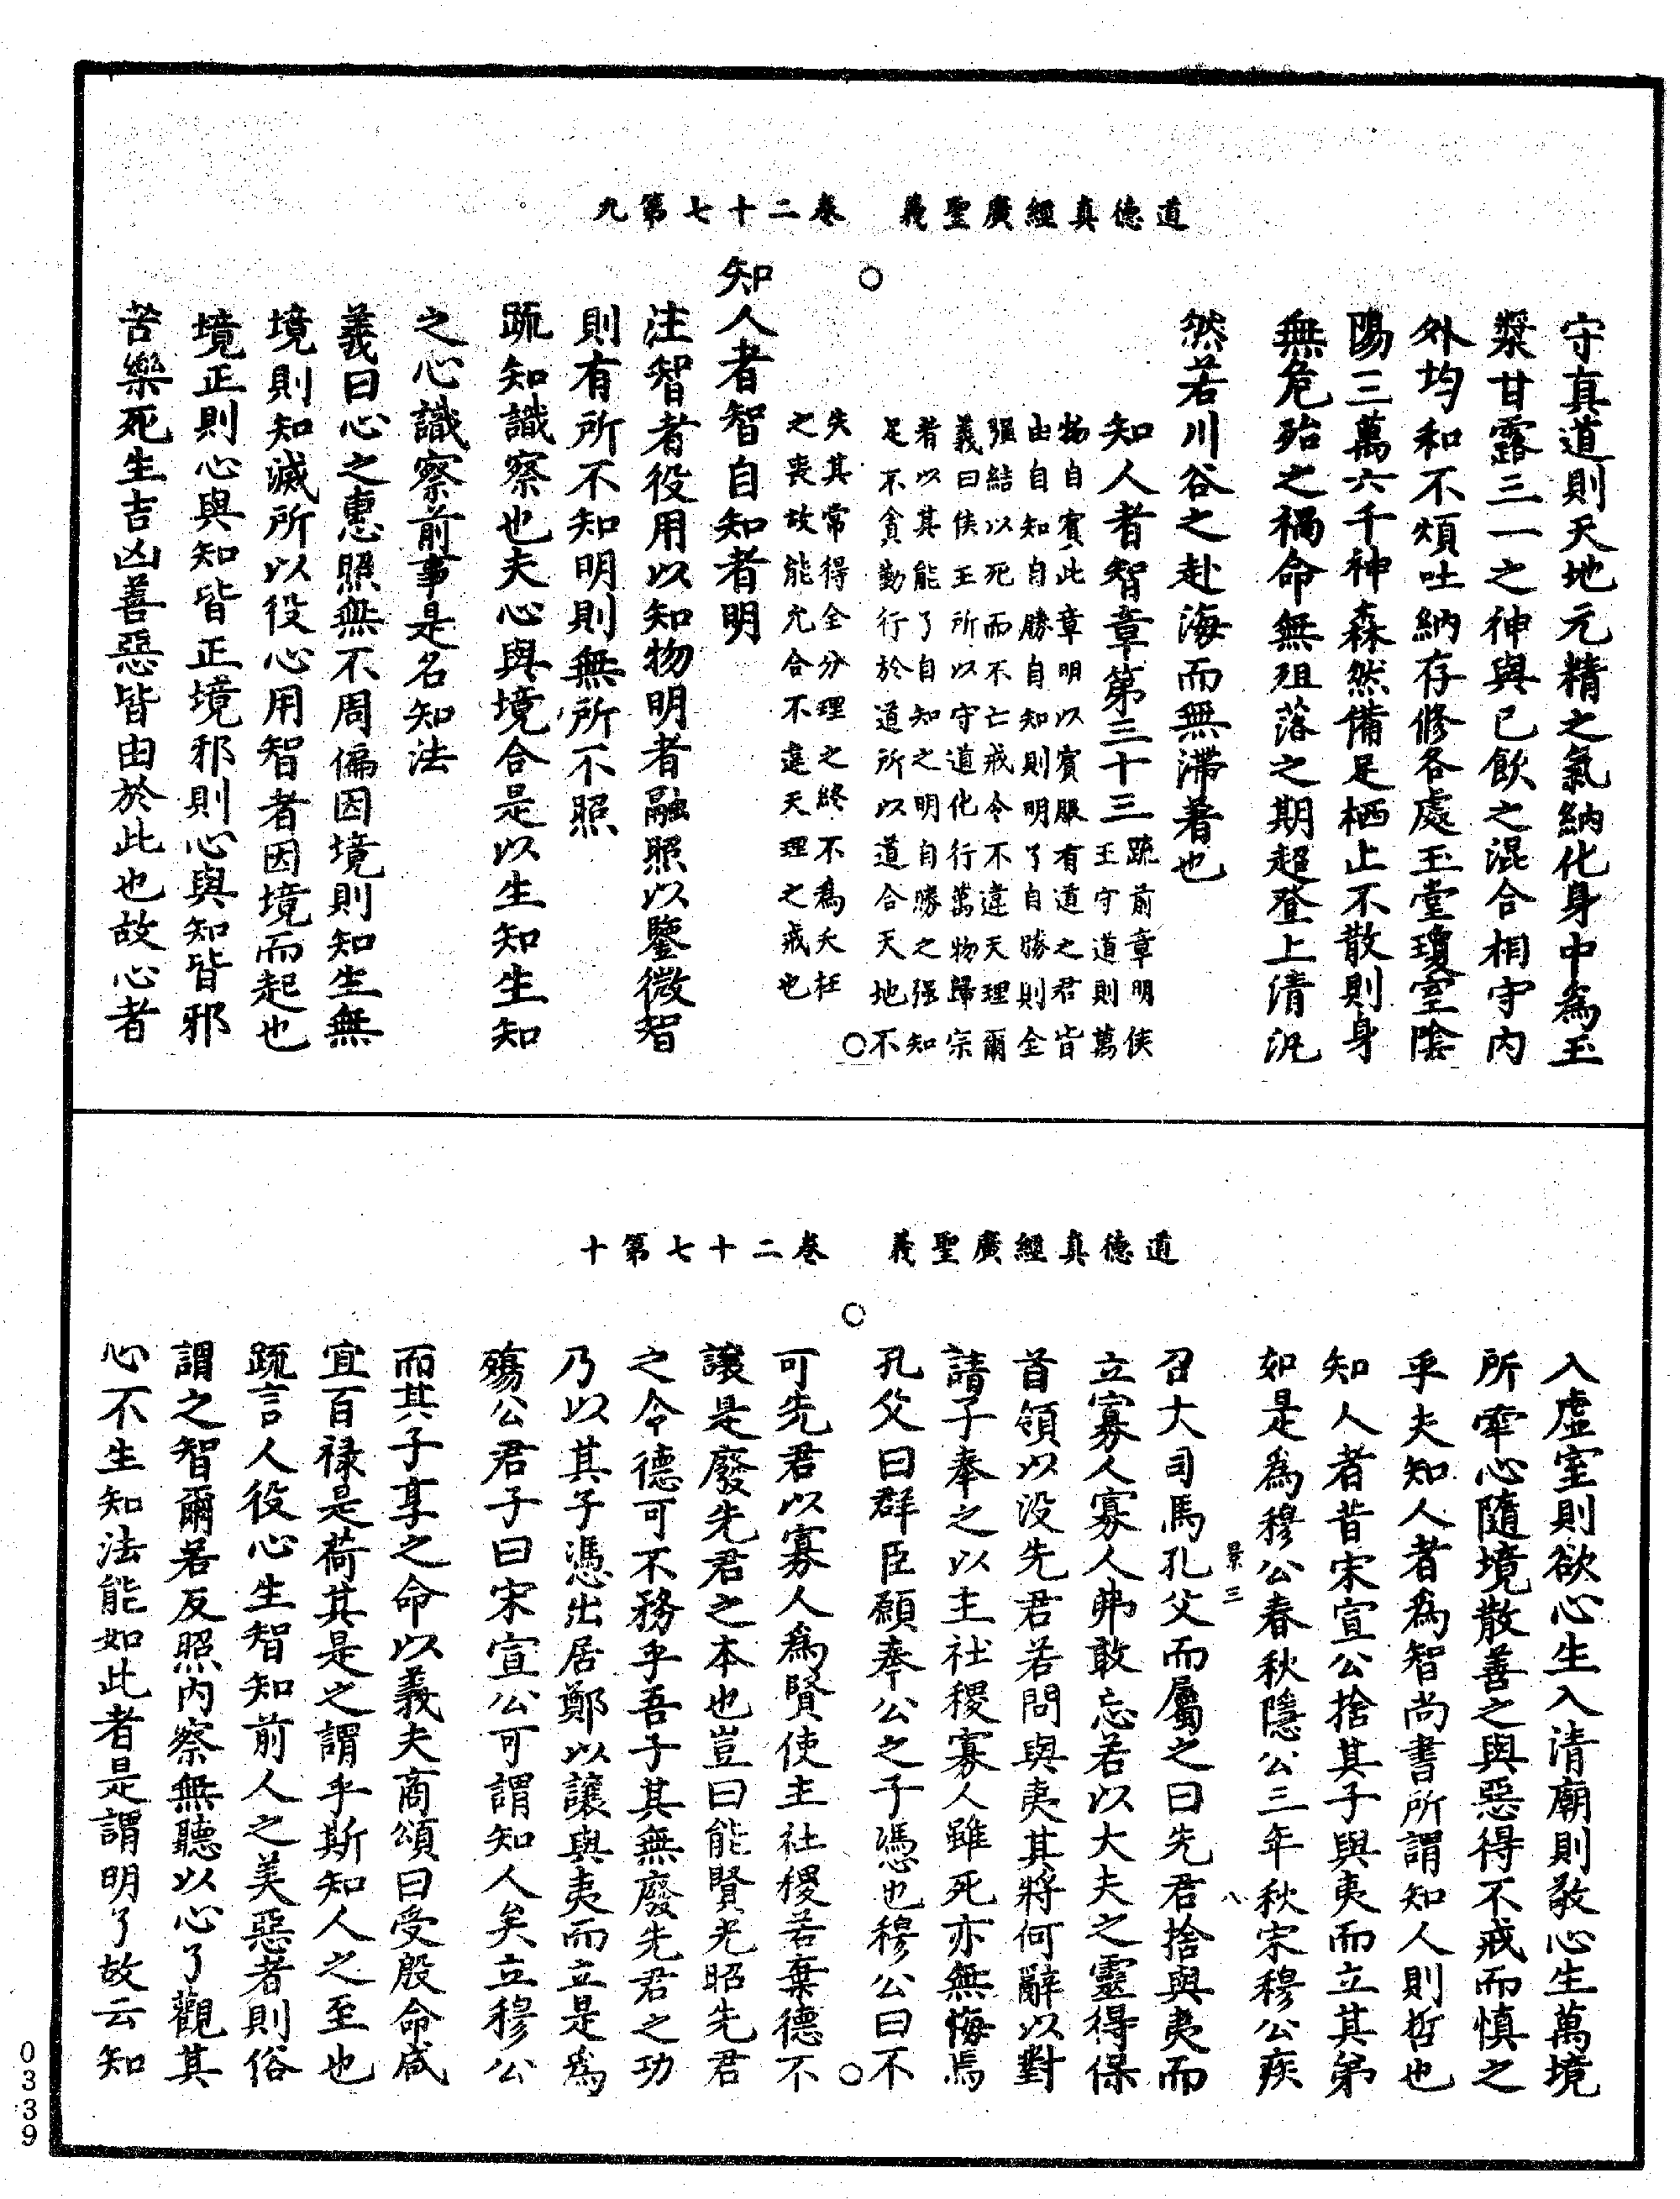 道德真經廣聖義　卷二十七第九
守真道則天地元精之氣納化身中為玉
漿甘露三一之神與己飲之混合相守內
外均和不煩吐納存修各處玉堂瓊室陰
陽三萬六千神森然備足栖止不散則身
無危殆之禍命無殂落之期超登上清汎
然若川谷之赴海而無滯著也
知人者智章第三十三
疏前章明侯
王守道則萬
物自賓此章明以賓服有道之君皆
由自知自勝自知則明了自勝則全
强結以死而不亡戒令不違天理爾
義曰侯王所以守道化行萬物歸宗
者以其能了自知之明自勝之强知
足不貪勤行於道所以道合天地不
失其常得全分理之終不為夭枉
之喪故能允合不違天理之戒也
知人者智自知者明
注智者役用以知物明者融照以鑒微智
則有所不知明則無所不照
疏知識察也夫心與境合是以生知生知
之心識察前事是名知法
義曰心之惠照無不周徧因境則知生無
境則知滅所以役心用智者因境而起也
境正則心與知皆正境邪則心與知皆邪
苦樂死生吉凶善惡皆由於此也故心者
道德真經廣聖義　卷二十七第十
入虛室則欲心生入清廟則敬心生萬境
所牽心隨境散善之與惡得不戒而慎之
乎夫知人者為智尚書所謂知人則哲也
知人者昔宋宣公捨其子與夷而立其弟
如是為穆公春秋隱公三年秋宋穆公疾
景三　八
召大司馬孔父而屬之曰先君捨與夷而
立寡人寡人弗敢忘若以大夫之靈得保
首領以没先君若問與夷其將何辭以對
請子奉之以主社稷寡人雖死亦無悔焉
孔父曰群臣願奉公之子馮也穆公曰不
可先君以寡人為賢使主社稷若棄德不
讓是廢先君之本也豈曰能賢光昭先君
之令德可不務乎吾子其無廢先君之功
乃以其子馮出居鄭以讓與夷而立是為
殤公君子曰宋宣公可謂知人矣立穆公
而其子享之命以義夫商頌曰受殷命咸
宜百禄是荷其是之謂乎斯知人之至也
疏言人役心生智知前人之美惡者則俗
謂之智爾若反照內察無聽以心了觀其
心不生知法能如此者是謂明了故云知
0339